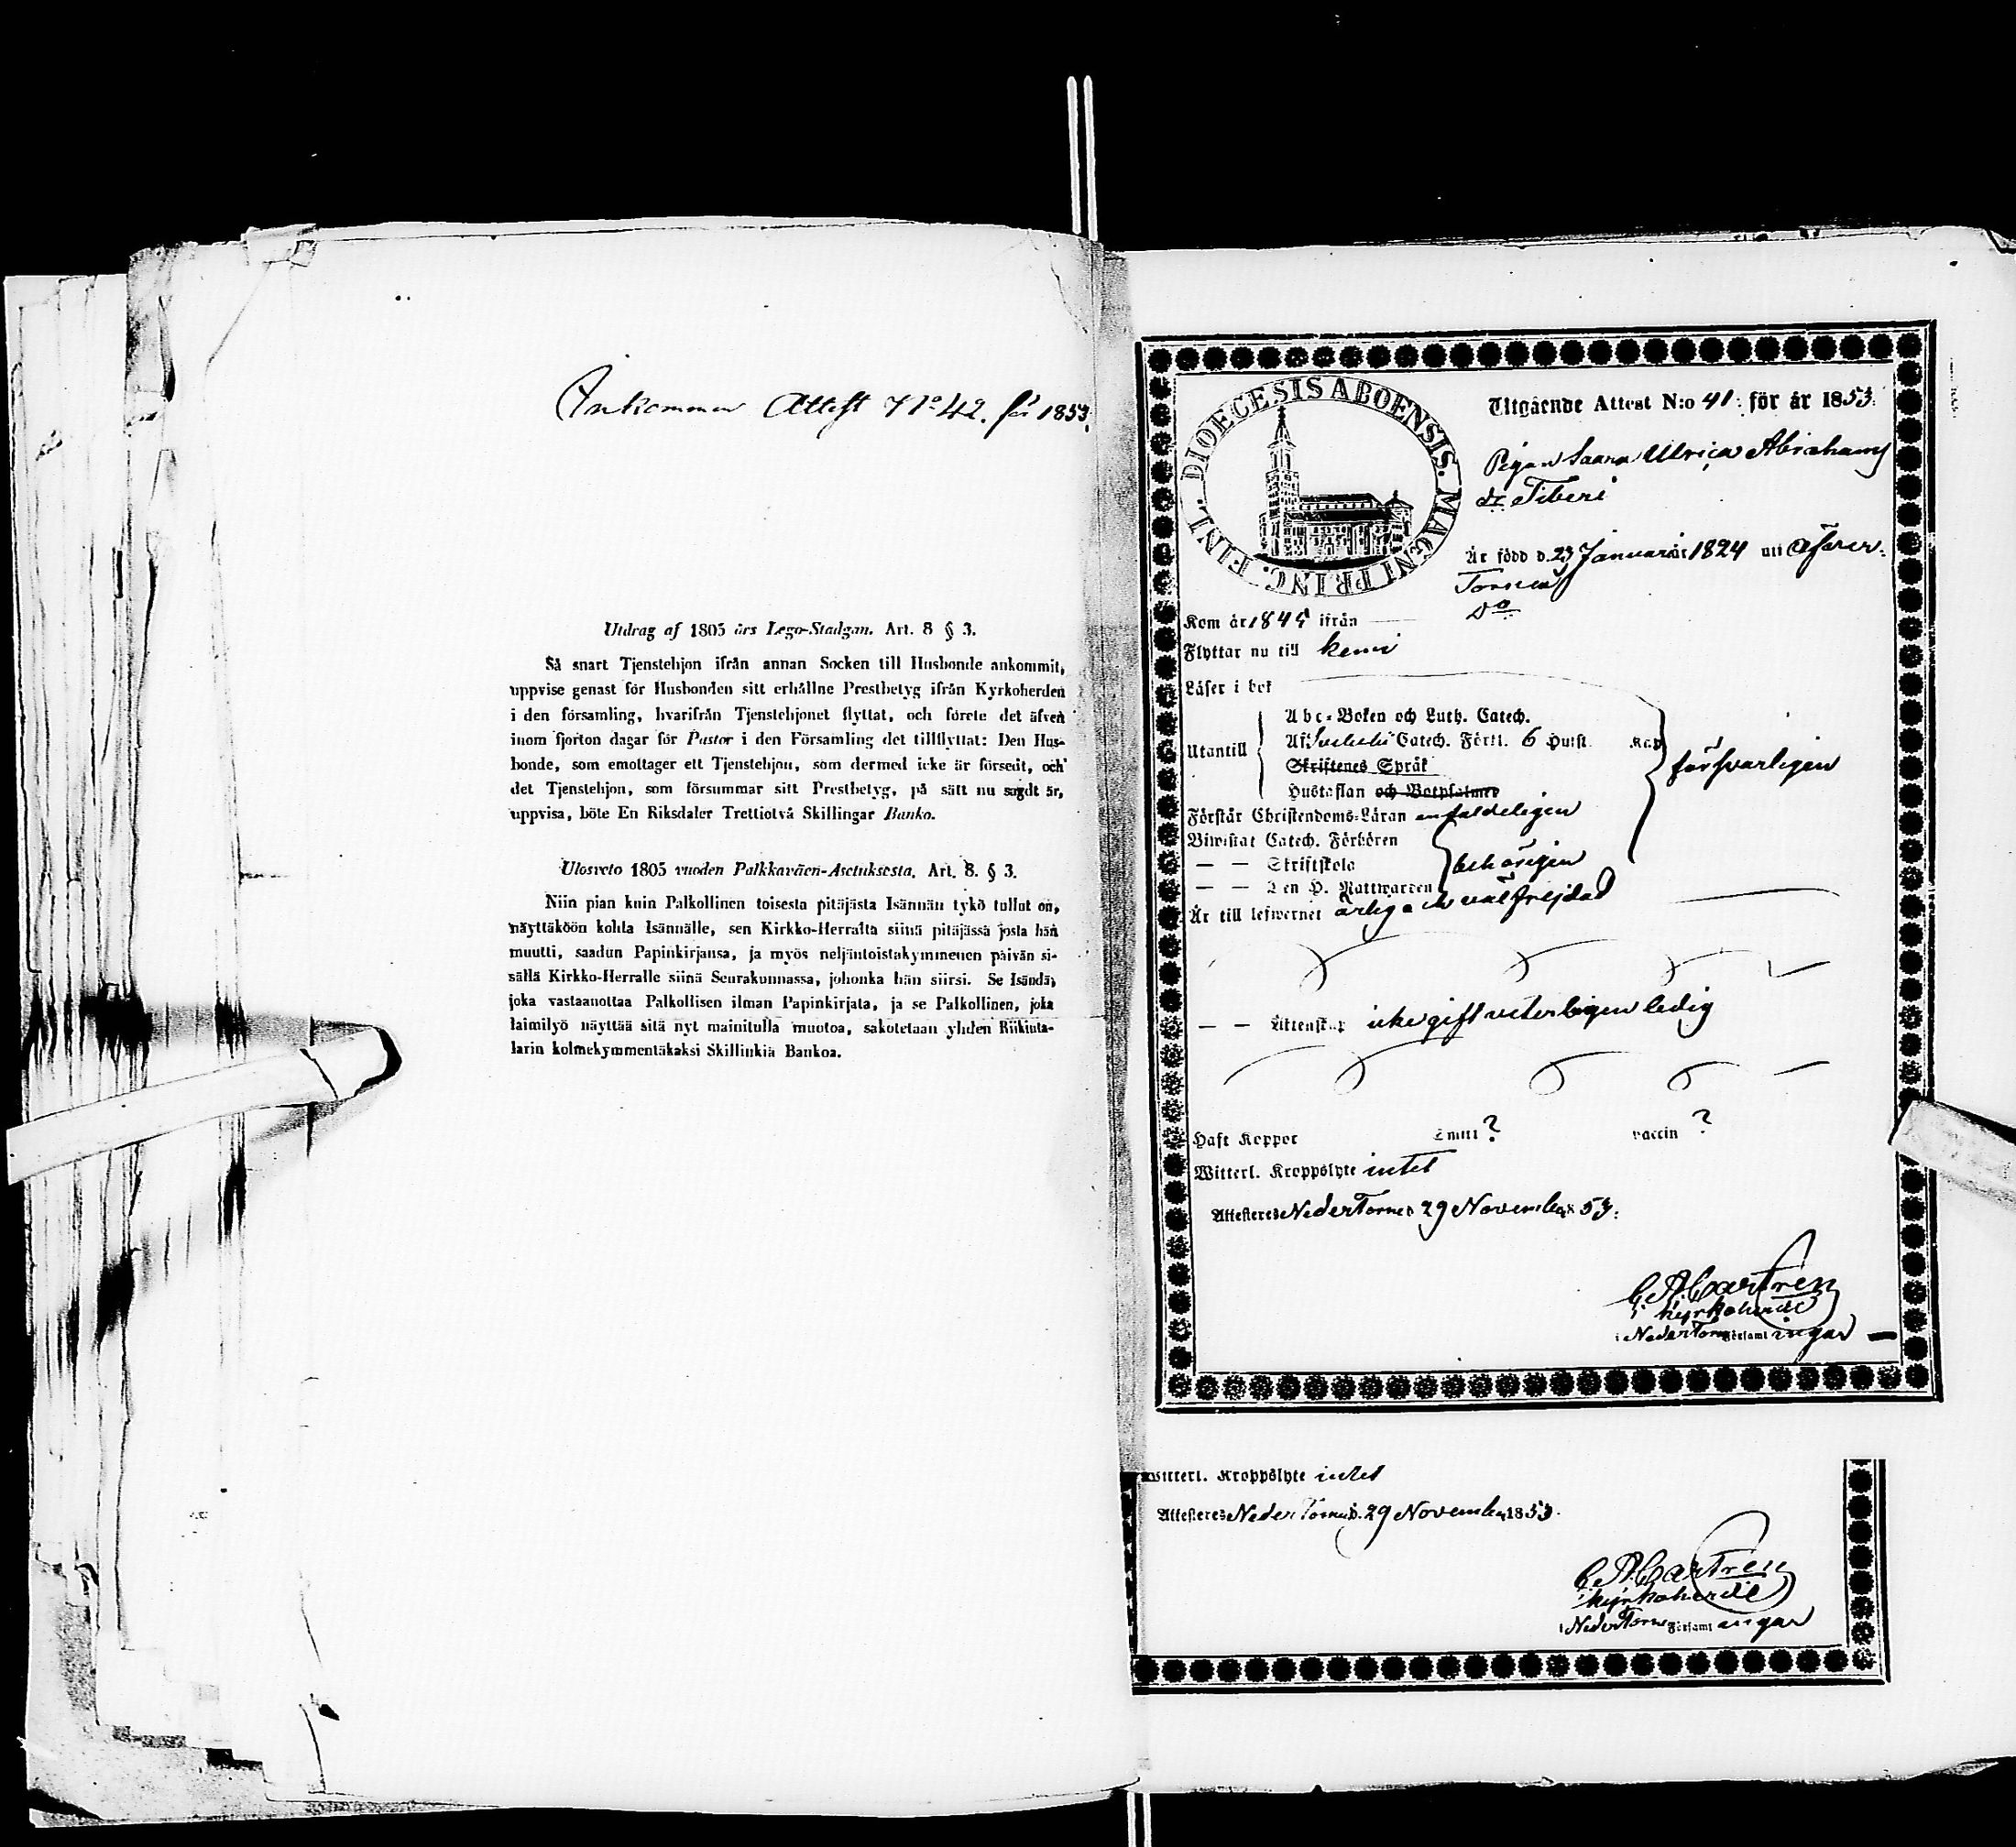 Inkommen Attest No 42. för 1853.
Utdrag af 1805 års Lego-Stadgan. Art. 8 § 3.
Så snart Tjenstehjon ifrån annan Socken till Husbonde ankommit,
uppvise genast för Husbonden sitt erhållne Prestbetyg ifrån Kyrkoherden
i den församling, hvarifrån Tjenstehjonet flyttat, och förete det äfven
inom fjorton dagar för Pastor i den Församling det tillflyttat: Den Hus-
bonde, som emottager ett Tjenstehjon, som dermed icke är försedt, och
det Tjenstehjon, som försummar sitt Prestbetyg, på sätt nu sagdt är,
uppvisa, böte En Riksdaler Trettiotvå Skillingar Banko.
Ulosveto 1805 vuoden Palkkaväen-Asetuksesta. Art. 8. § 3.
Niin pian kuin Palkollinen toisesta pitäjästä Isännän tykö tullut on,
näyttäköön kohta Isännälle, sen Kirkko-Herralta siinä pitäjässä josta hän
muutti, saadun Papinkirjansa, ja myös neljäntoistakymmenen päivän si-
sällä Kirkko-Herralle siinä Seurakunnassa, johonka hän siirsi. Se Isändä,
joka vastaanottaa Palkollisen ilman Papinkirjata, ja se Palkollinen, joka
laimilyö näyttää sitä nyt mainitulla muotoa, sakotetaan yhden Riikinta-
larin kolmekymmentäkaksi Skillinkiä Bankoa.
DIOECESIS ABOENSIS. MAGNI PRINC. FINL.
Utgående Attest N:o 41. för år 1853.
Pigan Saara Ulrica Abrahams
dr Tiberi
Är född d. 23 Januari år 1824 uti Öfver-
Torneå
Kom år 1845 ifrån Do
Flyttar nu till Kemi
Läser i bok
Utantill
Abc-Boken och Luth. Catech.
Af Catech. Förkl. 6 Hufst. Kap
Skriftenes Språk
Hustaflan och Botpsalmer
försvarligen
Förstår Christendoms-Läran enfaldeligen
Biwistat Catech. Förhören
— — Skriftskola
— — Den H. Nattwarden
behörigen
Är till lefwernet ärlig och välfrejdad
— — Äktenskap icke gift veterligen ledig
Haft Koppor ? vaccin ?
Witterl. Kroppslyte intet
Attesteres Neder Torneå 29 November 1853.
Castren
Kyrkoherde
i Neder Torneå Församlingar
Witterl. Kroppslyte intet
Attesteres Neder Torneå d. 29 November 1853.
Castren
Kyrkoherde
i Neder Torneå Församlingar